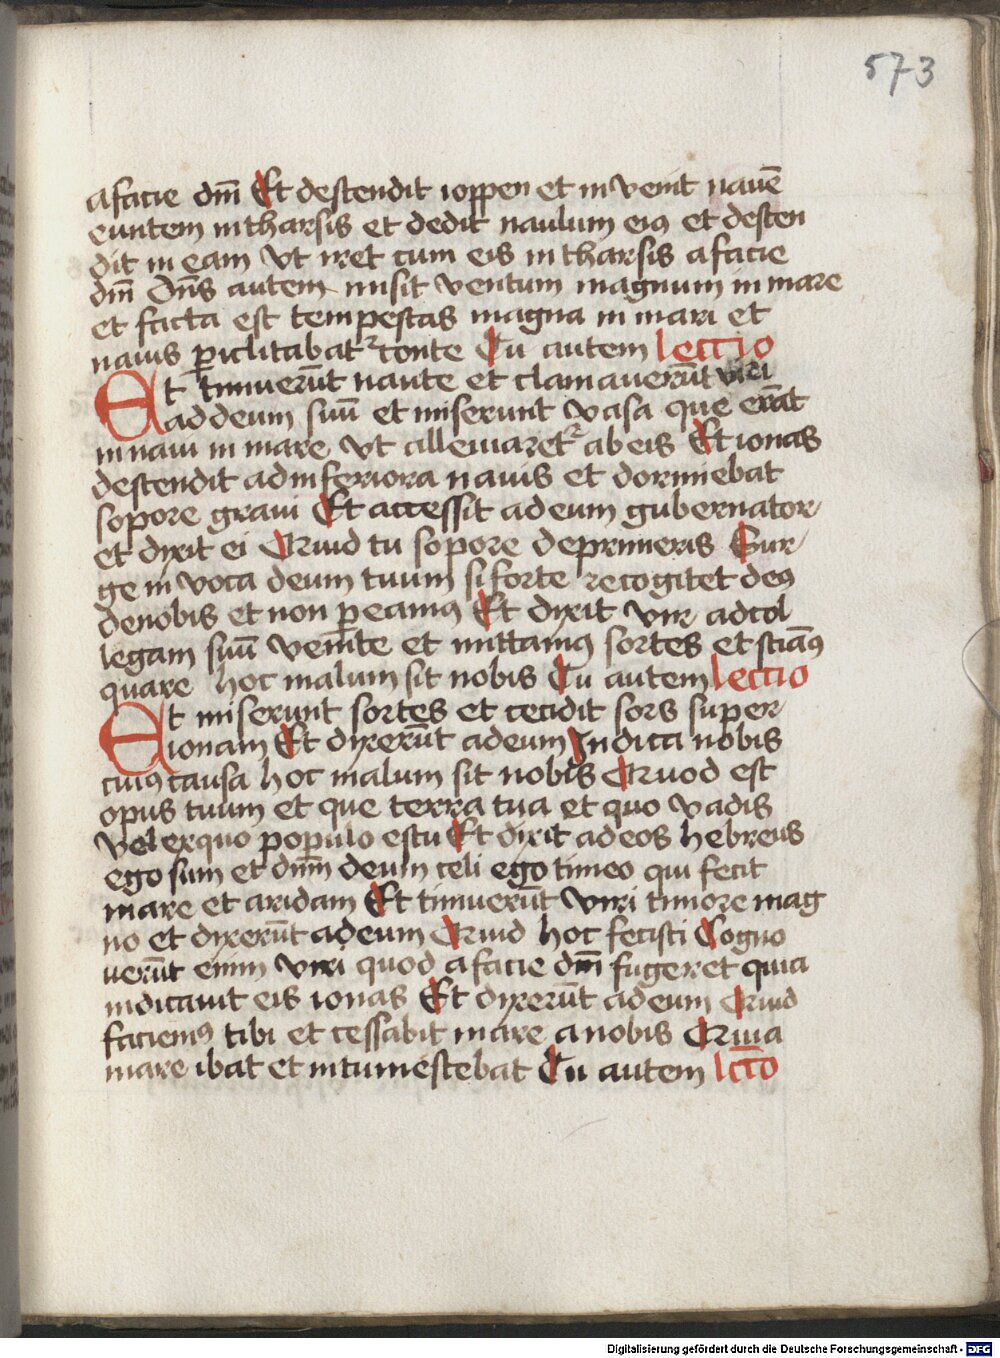 573
a facie dn̄i Et descendit ioppen et in venit nauē
euntem in tharsis et dedit naulum eiꝰ et descen
dit in eam vt iret cum eis in tharsis a facie
dn̄i Dn̄s autem misit ventum magnum in mare
et facta est tempestas magna in mari et
nauis ꝑiclitabatᷣ conte Tu autem lectio
Et timuerūt naute et clamauerūt viri
ad deum suū et miserunt vasa que erāt
in naui in mare vt alleuiaretᷣ ab eis Et ionas
descendit ad inferiora nauis et dormiebat
sopore graui Et accessit ad eum gubernator
et dixit ei Quid tu sopore deprimeris Sur
ge in voca deum tuum si forte recogitet deꝰ
de nobis et non ꝑeamꝰ Et dixit vir ad col
legam suū venite et mittamꝰ sortes et sciāꝰ
quare hoc malum sit nobis Tu autem lectio
Et miserunt sortes et cecidit sors super
ionam Et dixerūt ad eum Indica nobis
cuiꝰ causa hoc malum sit nobis Quod est
opus tuum et que terra tua et quo vadis
vel ex quo populo es tu Et dixit ad eos hebreus
ego sum et dn̄m deum celi ego timeo qui fecit
mare et aridam Et timuerūt viri timore mag
no et dixerūt ad eum Quid hoc fecisti Cogno
uerūt enim viri quod a facie dn̄i fugeret quia
indicauit eis ionas Et dixerūt ad eum Quid
faciemꝰ tibi et cessabit mare a nobis Quia
mare ibat et intumescebat Tu autem lct̄o
Digitalisierung gefördert durch die Deutsche Forschungsgemeinschaft - DFG